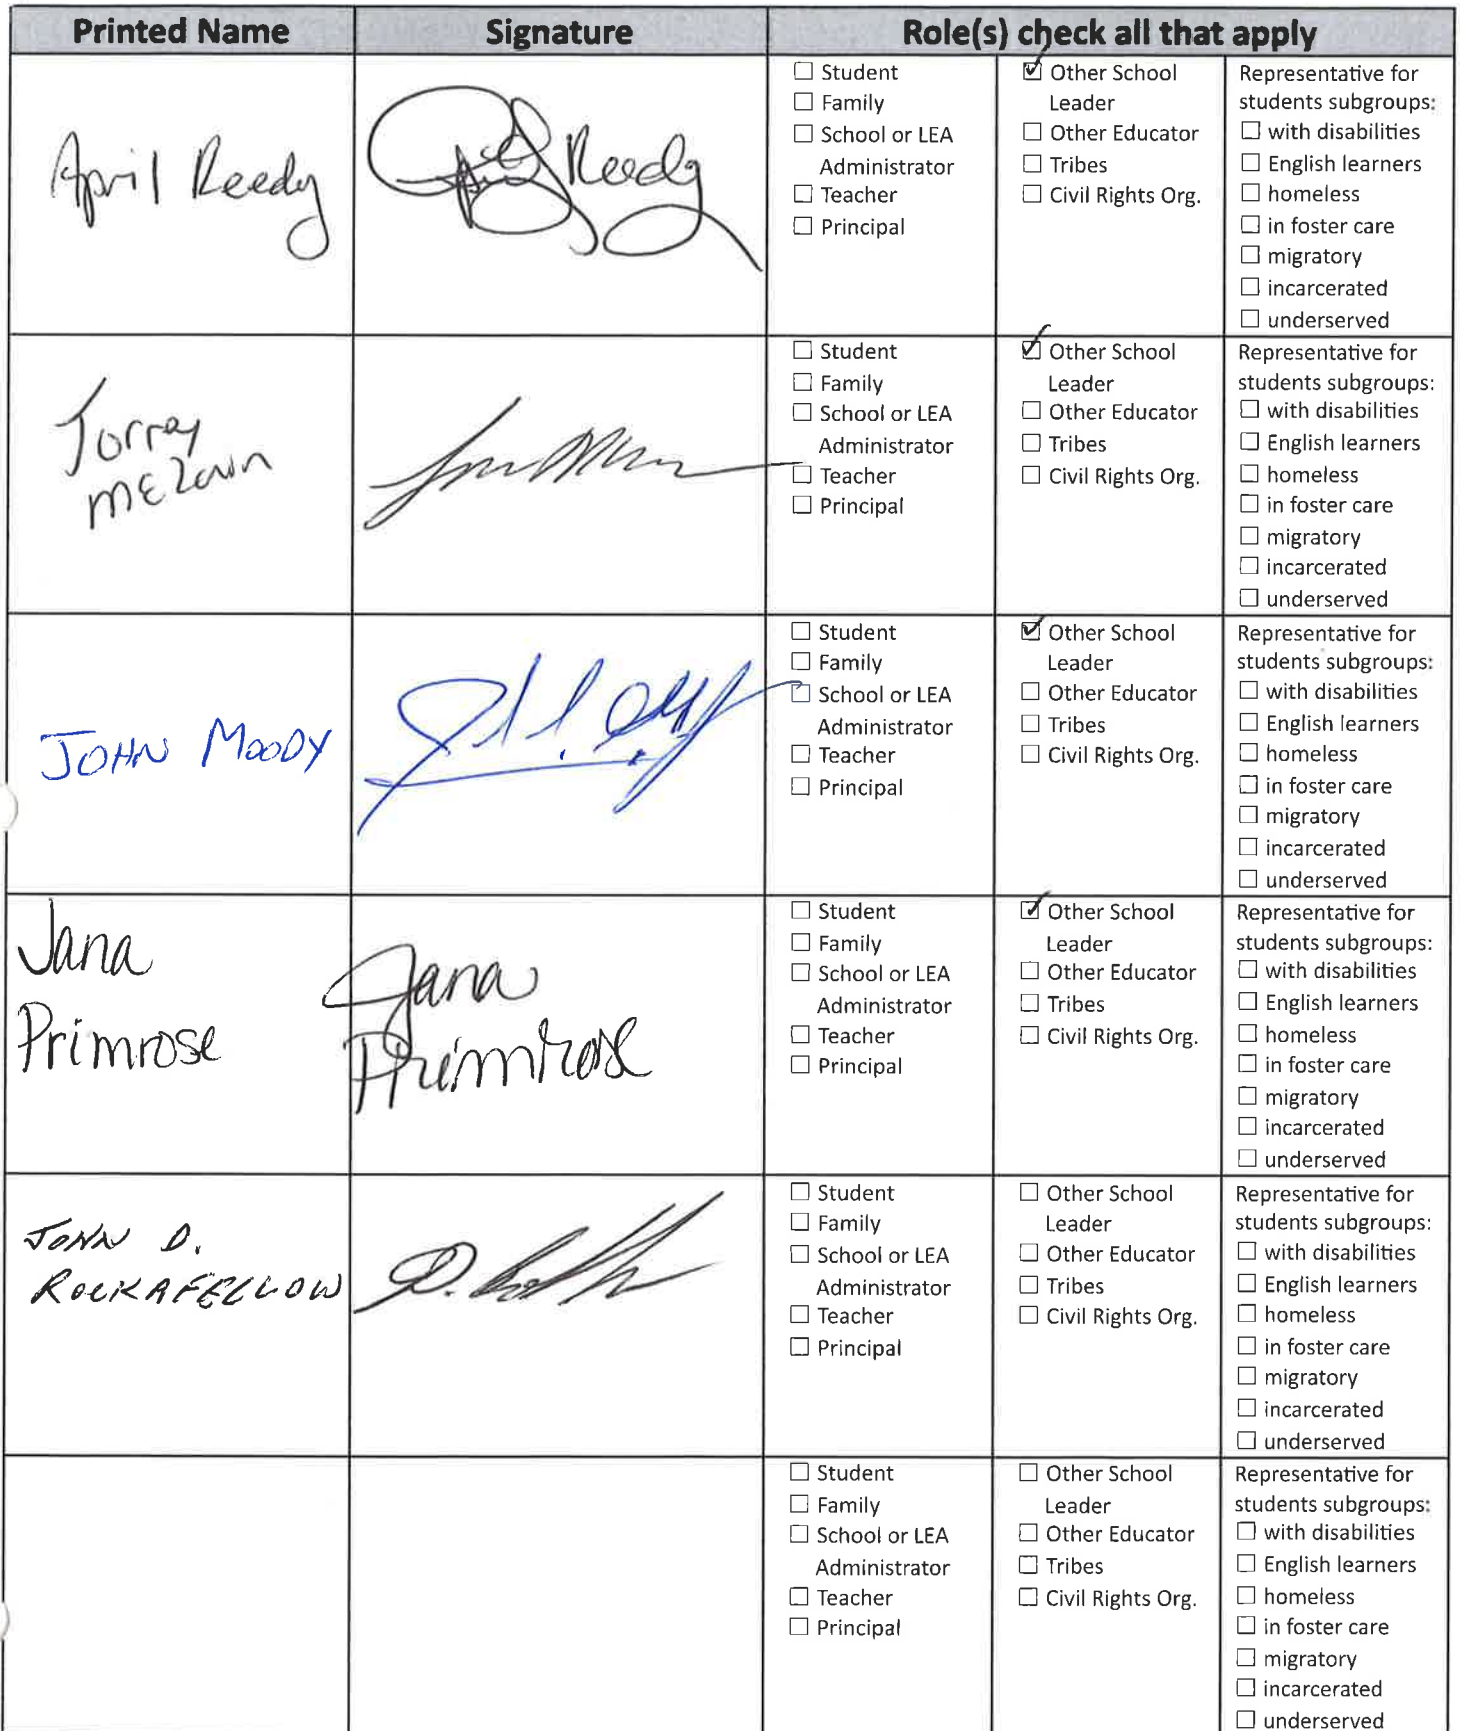 Printed Name Signature Role(s) check all that apply
April Reedy
April Reedy
☐ Student
☐ Family
☐ School or LEA
Administrator
☐ Teacher
☐ Principal
☑ Other School
Leader
☐ Other Educator
☐ Tribes
☐ Civil Rights Org.
Representative for
students subgroups:
☐ with disabilities
☐ English learners
☐ homeless
☐ in foster care
☐ migratory
☐ incarcerated
☐ underserved
Torrey
☐ Student
☐ Family
☐ School or LEA
Administrator
☐ Teacher
☐ Principal
☑ Other School
Leader
☐ Other Educator
☐ Tribes
☐ Civil Rights Org.
Representative for
students subgroups:
☐ with disabilities
☐ English learners
☐ homeless
☐ in foster care
☐ migratory
☐ incarcerated
☐ underserved
JOHN MOODY
☐ Student
☐ Family
☐ School or LEA
Administrator
☐ Teacher
☐ Principal
☑ Other School
Leader
☐ Other Educator
☐ Tribes
☐ Civil Rights Org.
Representative for
students subgroups:
☐ with disabilities
☐ English learners
☐ homeless
☐ in foster care
☐ migratory
☐ incarcerated
☐ underserved
Jana
Primrose
Jana
Primrose
☐ Student
☐ Family
☐ School or LEA
Administrator
☐ Teacher
☐ Principal
☑ Other School
Leader
☐ Other Educator
☐ Tribes
☐ Civil Rights Org.
Representative for
students subgroups:
☐ with disabilities
☐ English learners
☐ homeless
☐ in foster care
☐ migratory
☐ incarcerated
☐ underserved
JOHN D.
ROCKAFELLOW
☐ Student
☐ Family
☐ School or LEA
Administrator
☐ Teacher
☐ Principal
☐ Other School
Leader
☐ Other Educator
☐ Tribes
☐ Civil Rights Org.
Representative for
students subgroups:
☐ with disabilities
☐ English learners
☐ homeless
☐ in foster care
☐ migratory
☐ incarcerated
☐ underserved
☐ Student
☐ Family
☐ School or LEA
Administrator
☐ Teacher
☐ Principal
☐ Other School
Leader
☐ Other Educator
☐ Tribes
☐ Civil Rights Org.
Representative for
students subgroups:
☐ with disabilities
☐ English learners
☐ homeless
☐ in foster care
☐ migratory
☐ incarcerated
☐ underserved